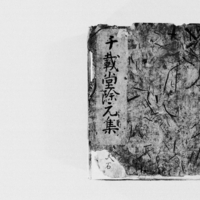 千載堂除元集